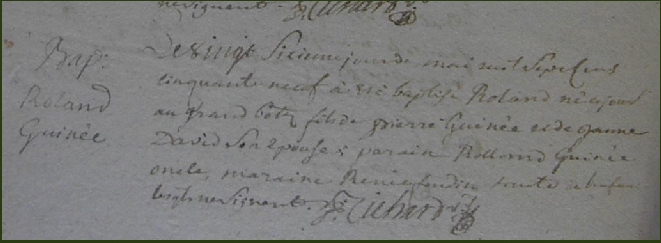 ne signent. J: Richard
Bap:
Roland
Guinée
Le vingt sixieme jour de mai mil sept cens
cinquante neuf à été baptisé Roland né ce jour
au grand fils de pierre Guinée et de jeanne
David son epouse; parain Rolland Guinée
oncle, maraine Renée tante
lesquels ne signent. J: Richard